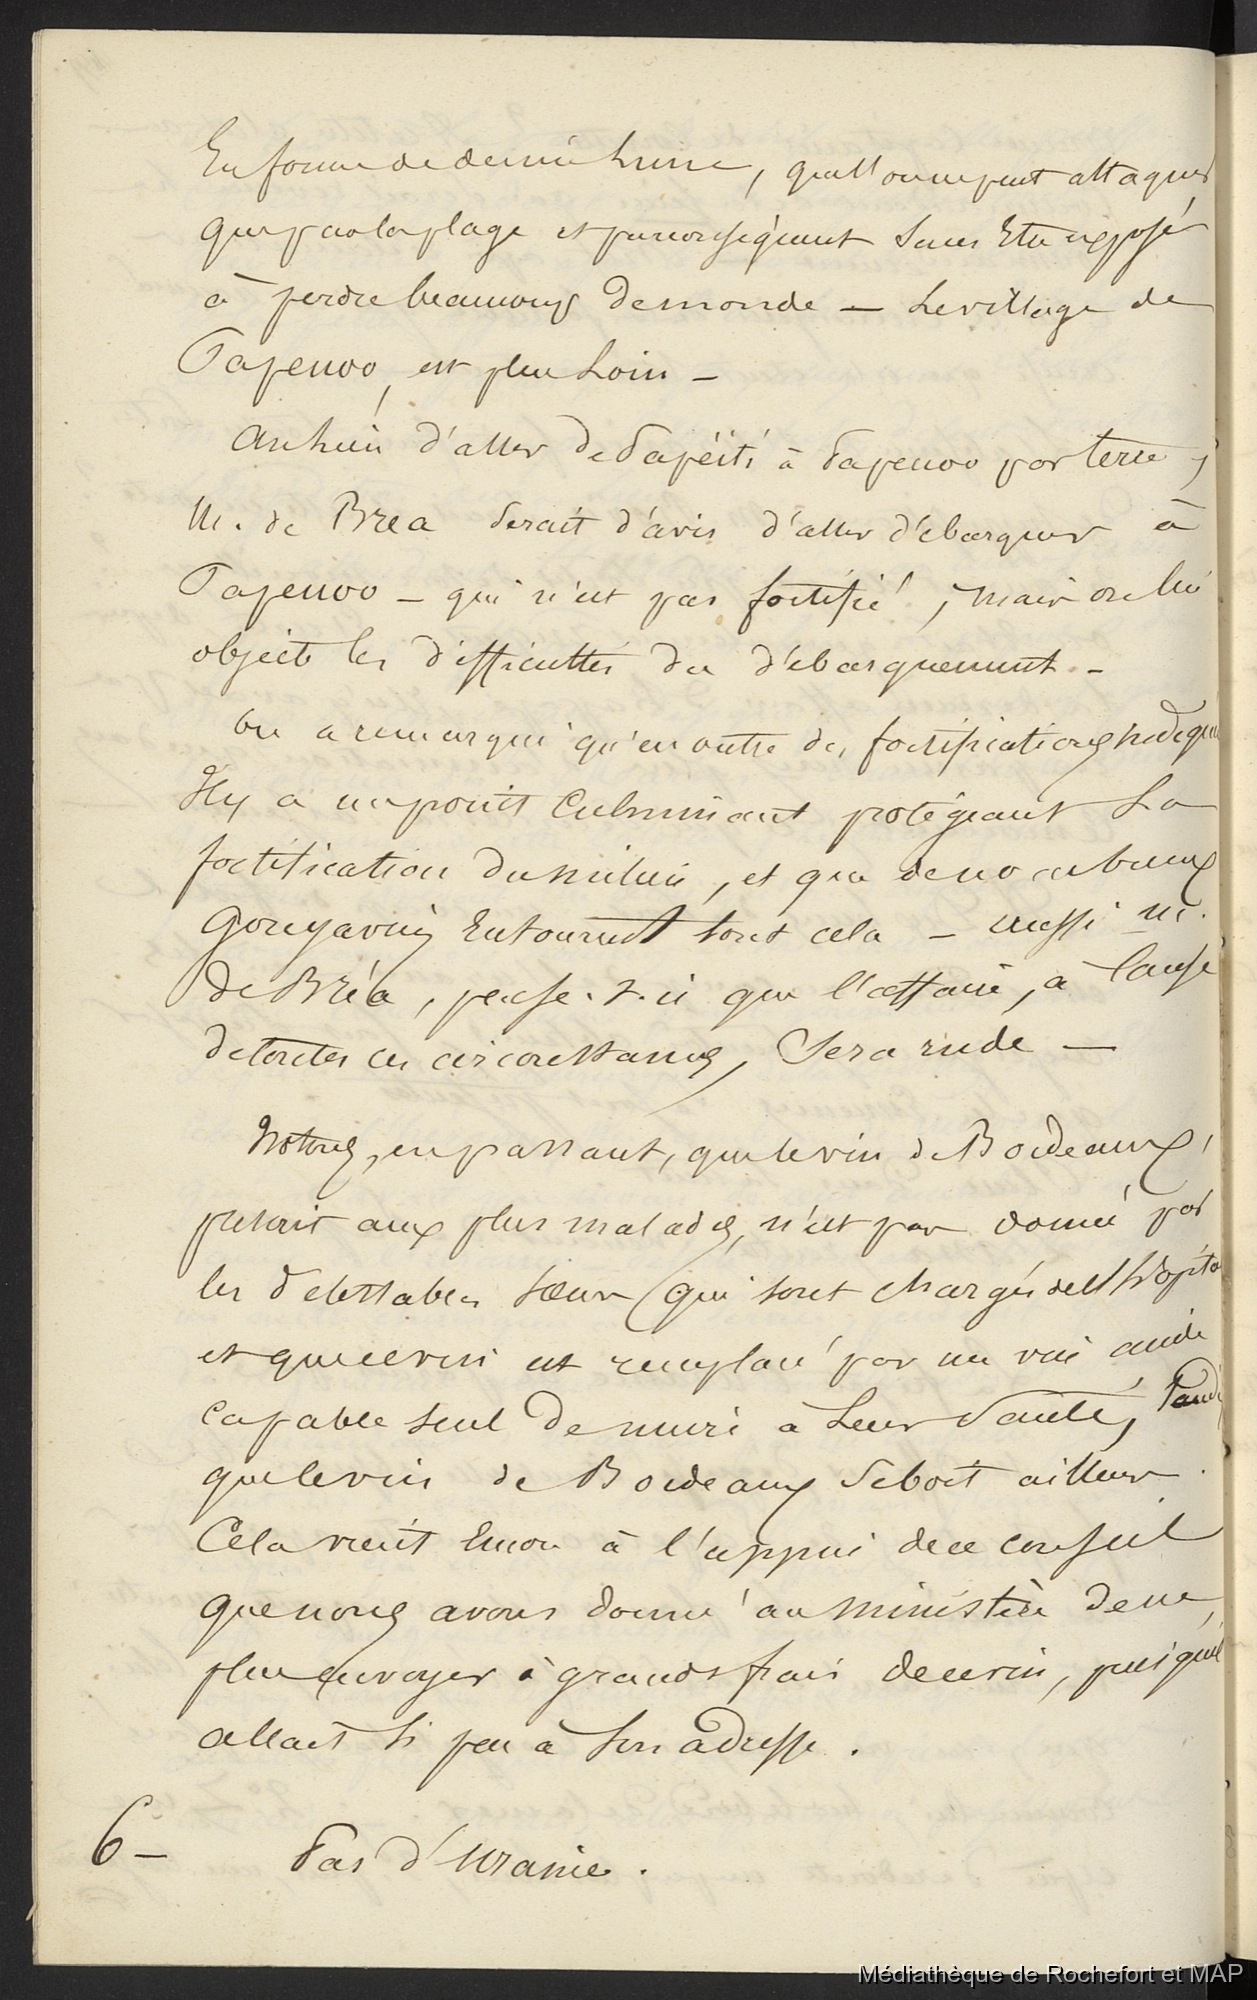 En forme de demie lune, qu'ell on ne peut attaquer
que par la plage et par conséquent sans Etre exposé
à perdre beaucoup de monde — Le village de
Papenoo, est plus Loin —
Au lieu d'aller de Papéïti à Papenoo par terre,
M. de Brea serait d'avis d'aller débarquer à
Papenoo — qui n'est pas fortifié, mais on lui
objecte les difficultés du débarquement. —
On a remarqué qu'en outre des fortifications
Il y a un point Culminant protégeant La
fortification du milieu, et que de no arbreux
Gouyaviers Entourent tout cela — aussi M.
de Bréa, pense-t-il que l'affaire, à cause
de toutes ces circonstances, Sera rude —
Notons, en passant, que le vin de Bordeaux,
prescrit aux plus malades, n'est pas donné par
les détestables sœurs qui sont chargés de l'hôpita
et que ce vin est remplacé par un vin acide
capable seul de nuire à Leur Santé, Tandi
que le vin de Bordeaux se boit ailleurs.
Cela vient Encore à l'appui de ce conseil
que nous avons donné au ministère de ne
plus envoyer à grands frais de ce vin, puisqu'il
allait si peu à son adresse.
6 — Pas d'Uranie.
Médiathèque de Rochefort et MAP